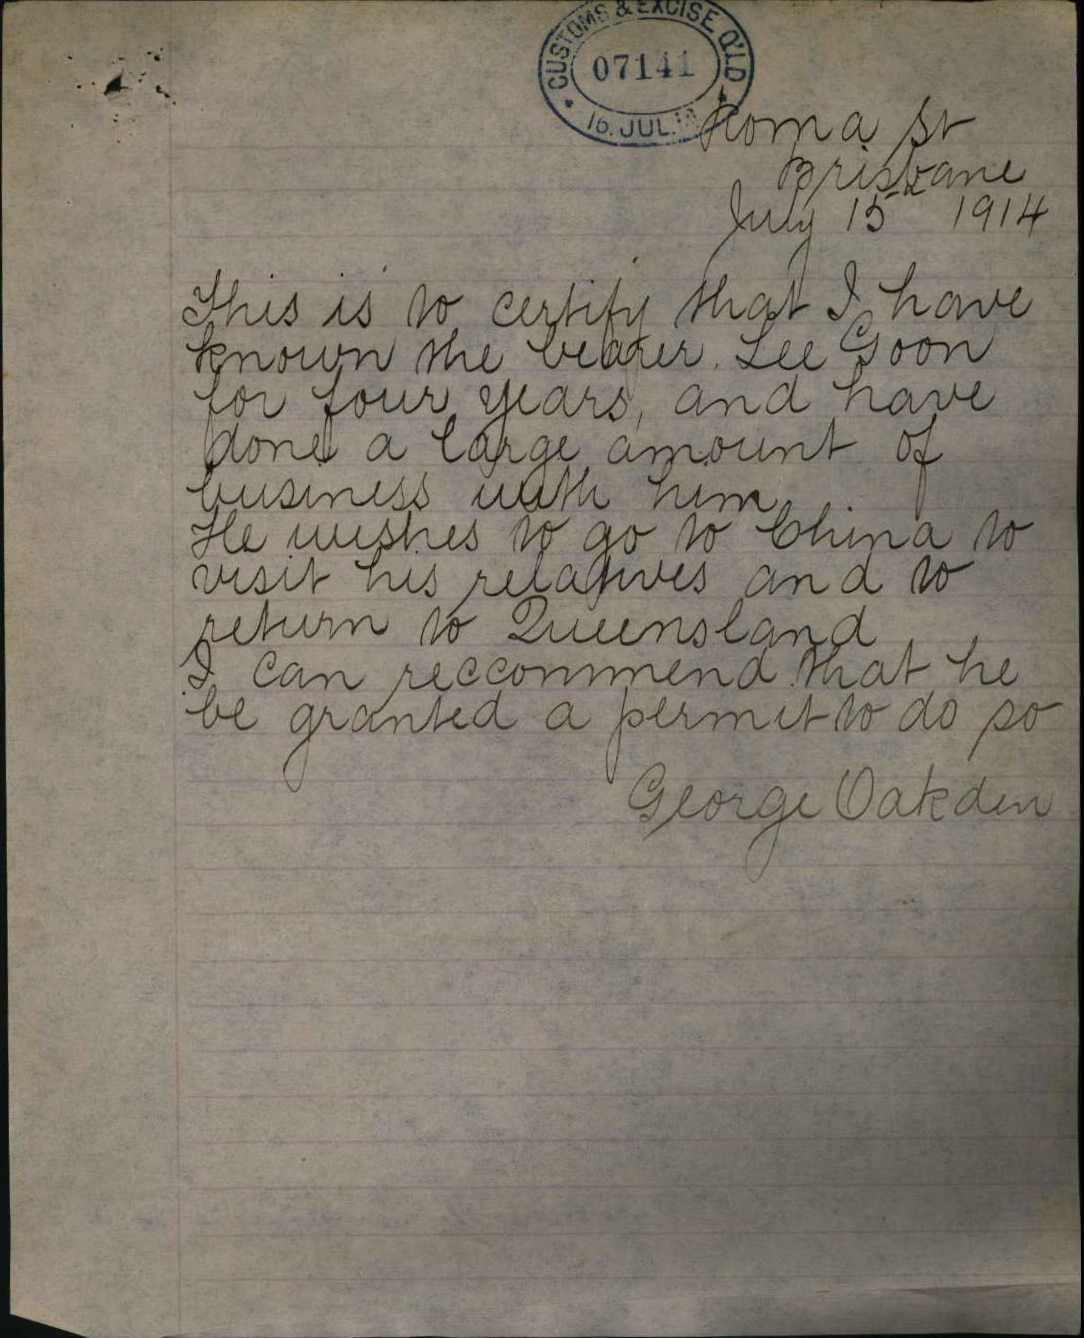 CUSTOMS & EXCISE Q'LD
07141
16. JUL. 14
Roma St
Brisbane
July 15th 1914
This is to certify that I have
known the bearer. Lee Goon
for four years, and have
done a large amount of
business with him
He wishes to go to China to
visit his relatives and to
return to Queensland
I can reccommend that he
be granted a permit to do so
George Oakden